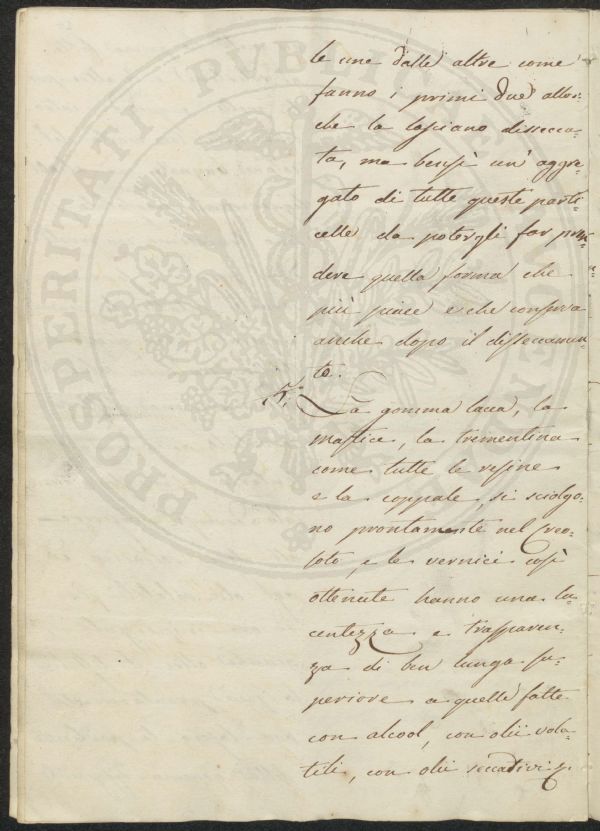 le une dalle altre come
fanno i primi due allor=
che la lasciano dissecca=
ta, ma bensì un' aggre=
gato di tutte queste parti=
celle da potergli far pren=
dere quella forma che
più piace e che conserva
anche dopo il disseccamen=
to.
5.° La gomma lacca, la
mastice, la trementina
come tutte le resine
e la coppale, si sciolgo=
no prontamente nel Creo=
soto, e le vernici così
ottenute hanno una lu=
centezza e trasparen=
za di ben lunga su=
periore a quelle fatte
con alcool, con olii vola=
tili, con olii seccativi
PROSPERITATI PVBLICAE